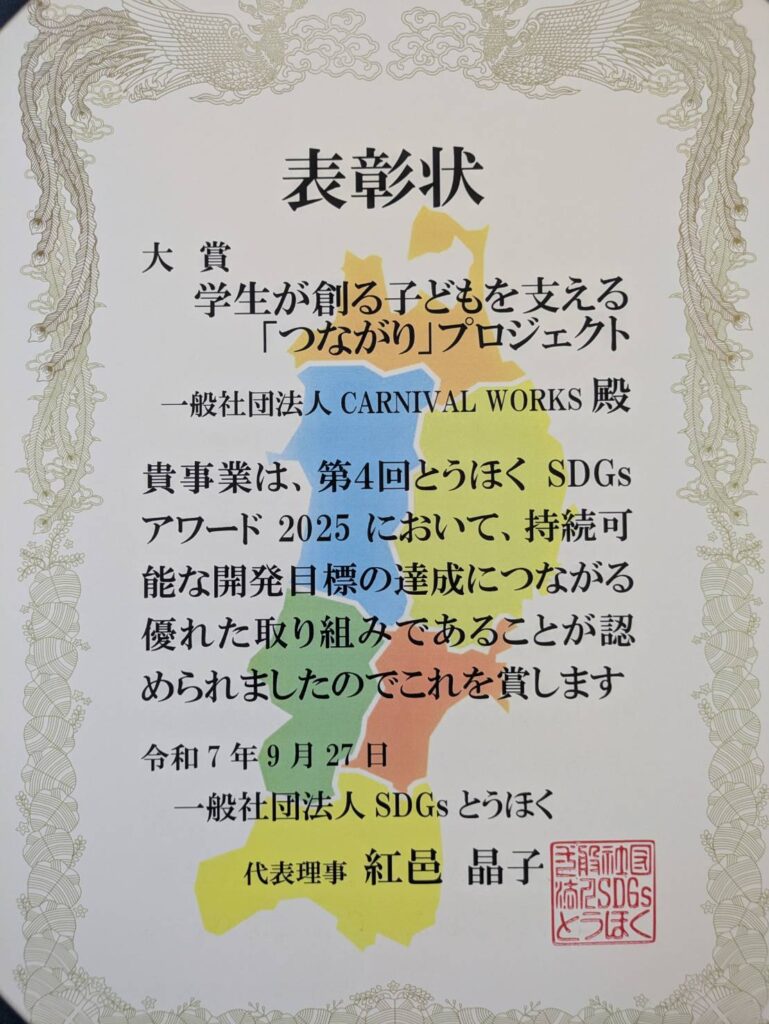 表彰状
大賞
学生が創る子どもを支える
「つながり」プロジェクト
一般社団法人 CARNIVAL WORKS 殿
貴事業は、第4回とうほく SDGs
アワード 2025 において、持続可
能な開発目標の達成につながる
優れた取り組みであることが認
められましたのでこれを賞します
令和7年9月27日
一般社団法人 SDGs とうほく
代表理事 紅邑 晶子
一般社団
法人SDGs
とうほく